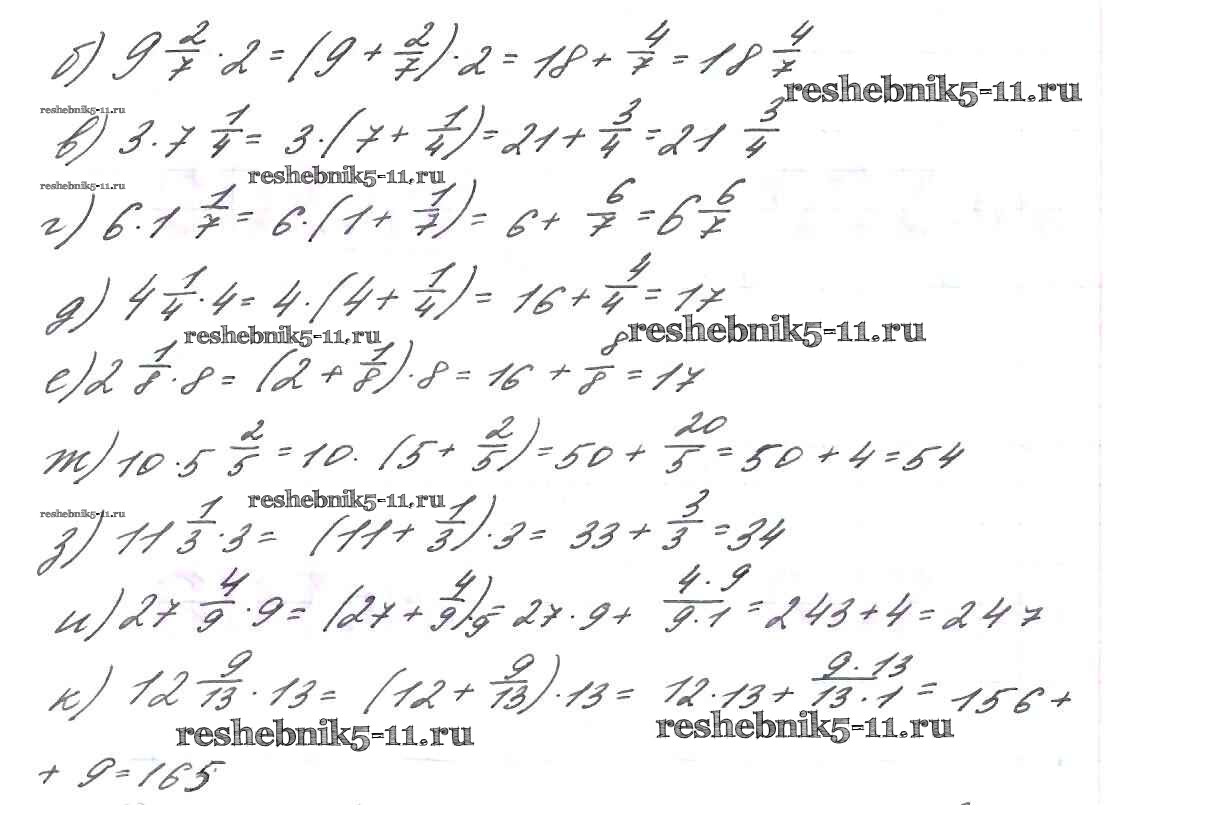 б) 9 2/7 · 2 = (9 + 2/7) · 2 = 18 + 4/7 = 18 4/7
reshebnik5-11.ru
reshebnik5-11.ru
в) 3 · 7 1/4 = 3 · (7 + 1/4) = 21 + 3/4 = 21 3/4
reshebnik5-11.ru
reshebnik5-11.ru
г) 6 · 1 1/7 = 6 · (1 + 1/7) = 6 + 6/7 = 6 6/7
д) 4 1/4 · 4 = 4 · (4 + 1/4) = 16 + 4/4 = 17
reshebnik5-11.ru
reshebnik5-11.ru
е) 2 1/8 · 8 = (2 + 1/8) · 8 = 16 + 8/8 = 17
ж) 10 · 5 2/5 = 10 · (5 + 2/5) = 50 + 20/5 = 50 + 4 = 54
reshebnik5-11.ru
reshebnik5-11.ru
з) 11 1/3 · 3 = (11 + 1/3) · 3 = 33 + 3/3 = 34
и) 27 4/9 · 9 = (27 + 4/9) · 9 = 27 · 9 + 4 · 9/9 · 1 = 243 + 4 = 247
к) 12 9/13 · 13 = (12 + 9/13) · 13 = 12 · 13 + 9 · 13/13 · 1 = 156 +
reshebnik5-11.ru
reshebnik5-11.ru
+ 9 = 165